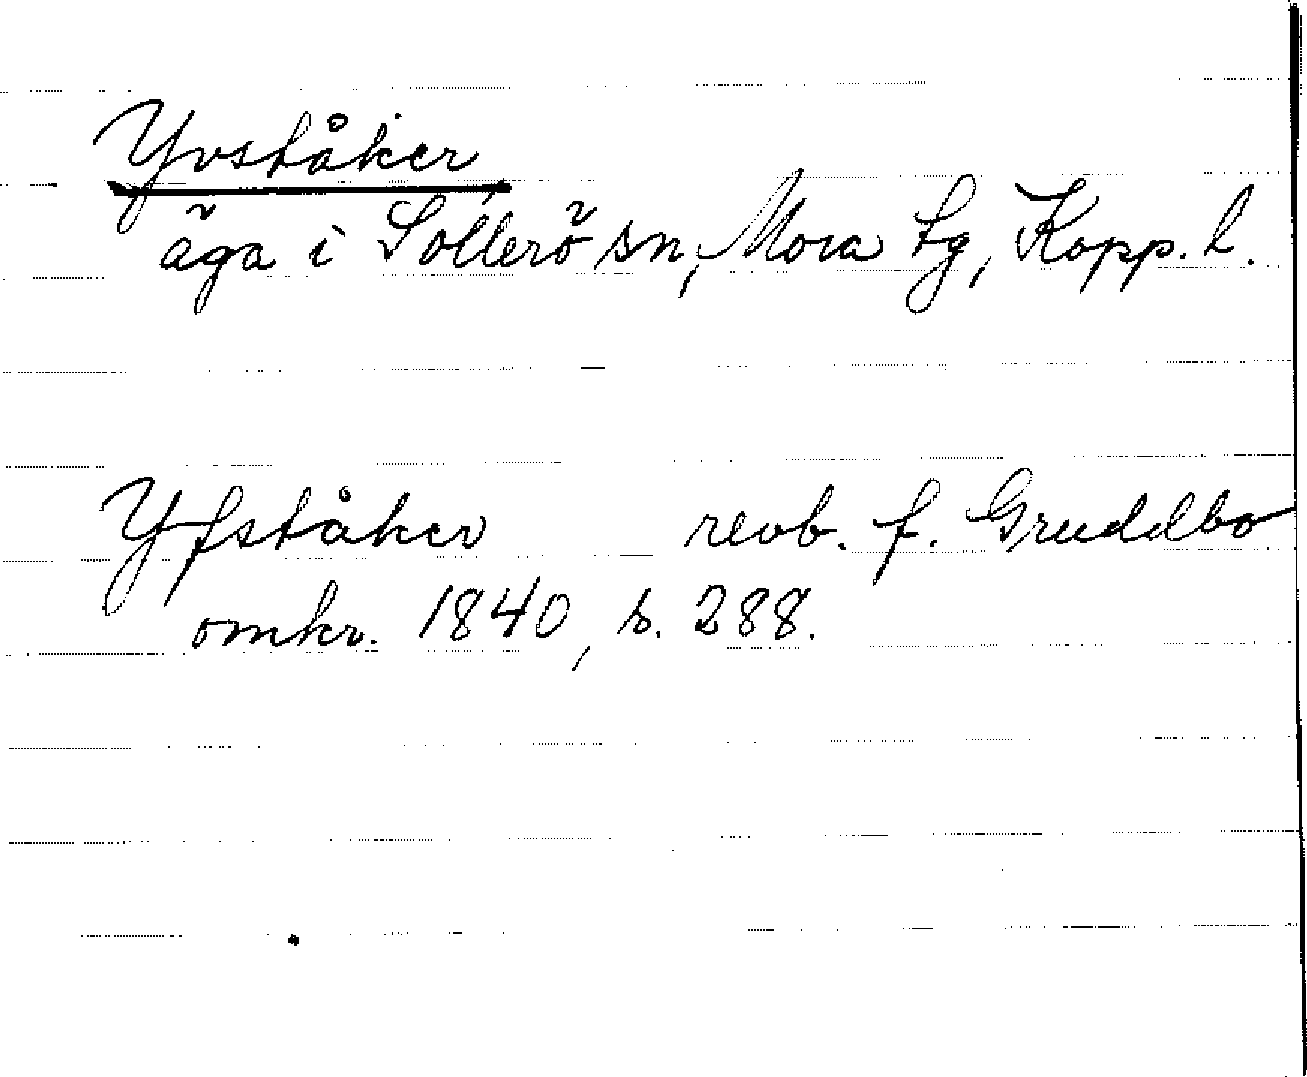 Yvståker
äga i Sollerö sn, Mora tg, Kopp. l.
Yfståker revb. f. Gruddbo
omkr. 1840, s. 288.